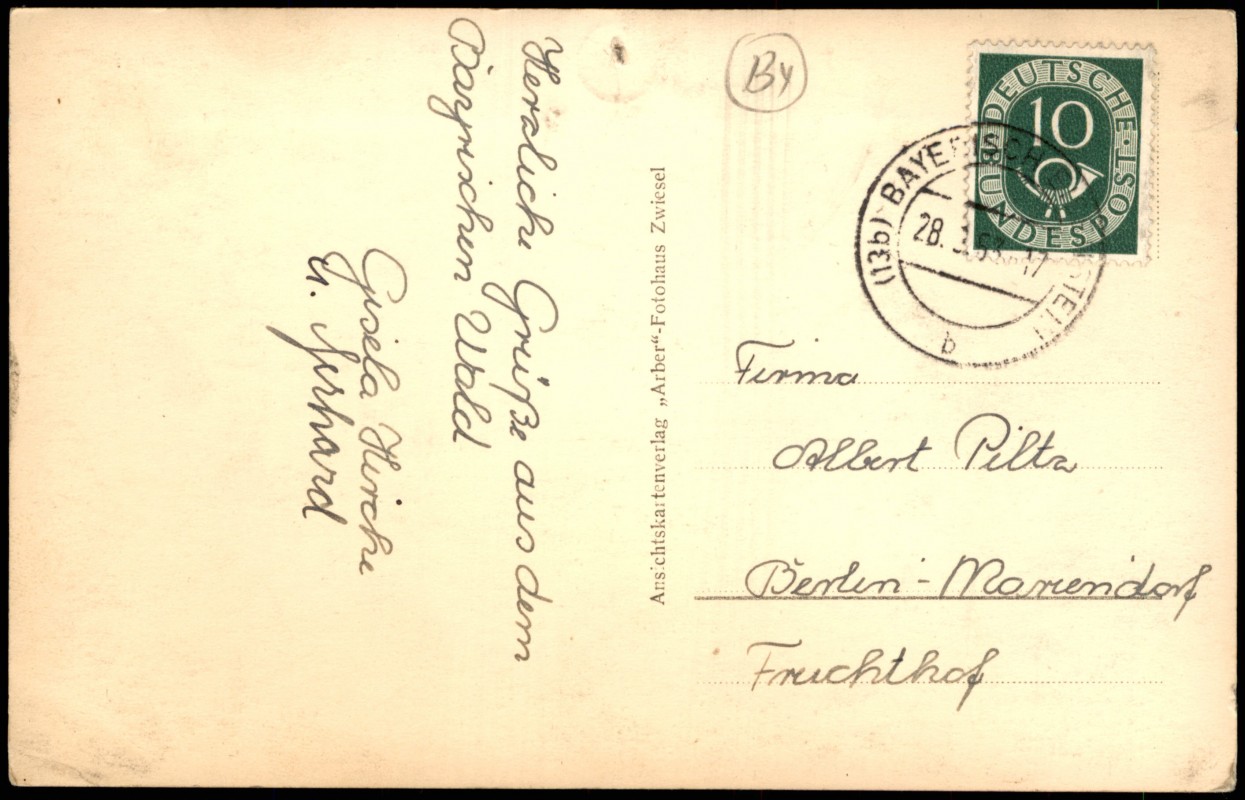 Herzliche Grüße aus dem
Bayrischen Wald
Gisela Hirche
u. Gerhard
Ansichtskartenverlag „Arber“-Fotohaus Zwiesel
By
DEUTSCHE BUNDESPOST
10
(13b) BAYERISCH
28. 53. 17
b
Firma
Albert Piltz
Berlin-Mariendorf
Fruchthof